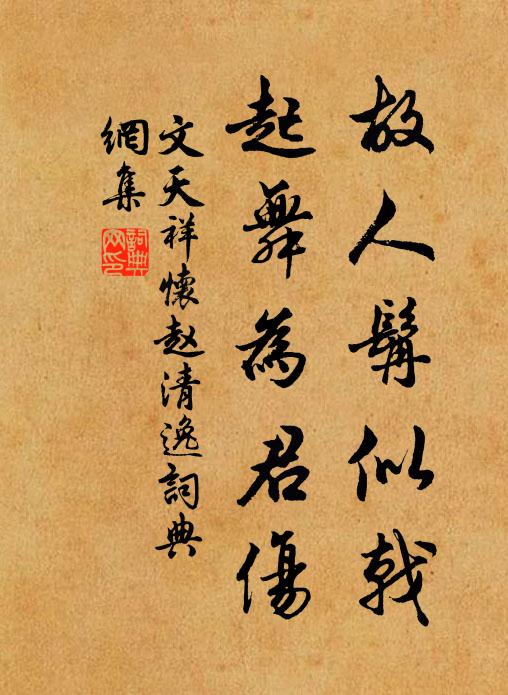 故人髯似戟
起舞為君傷
文天祥懷赵清逸詞典
網集
詞典網印